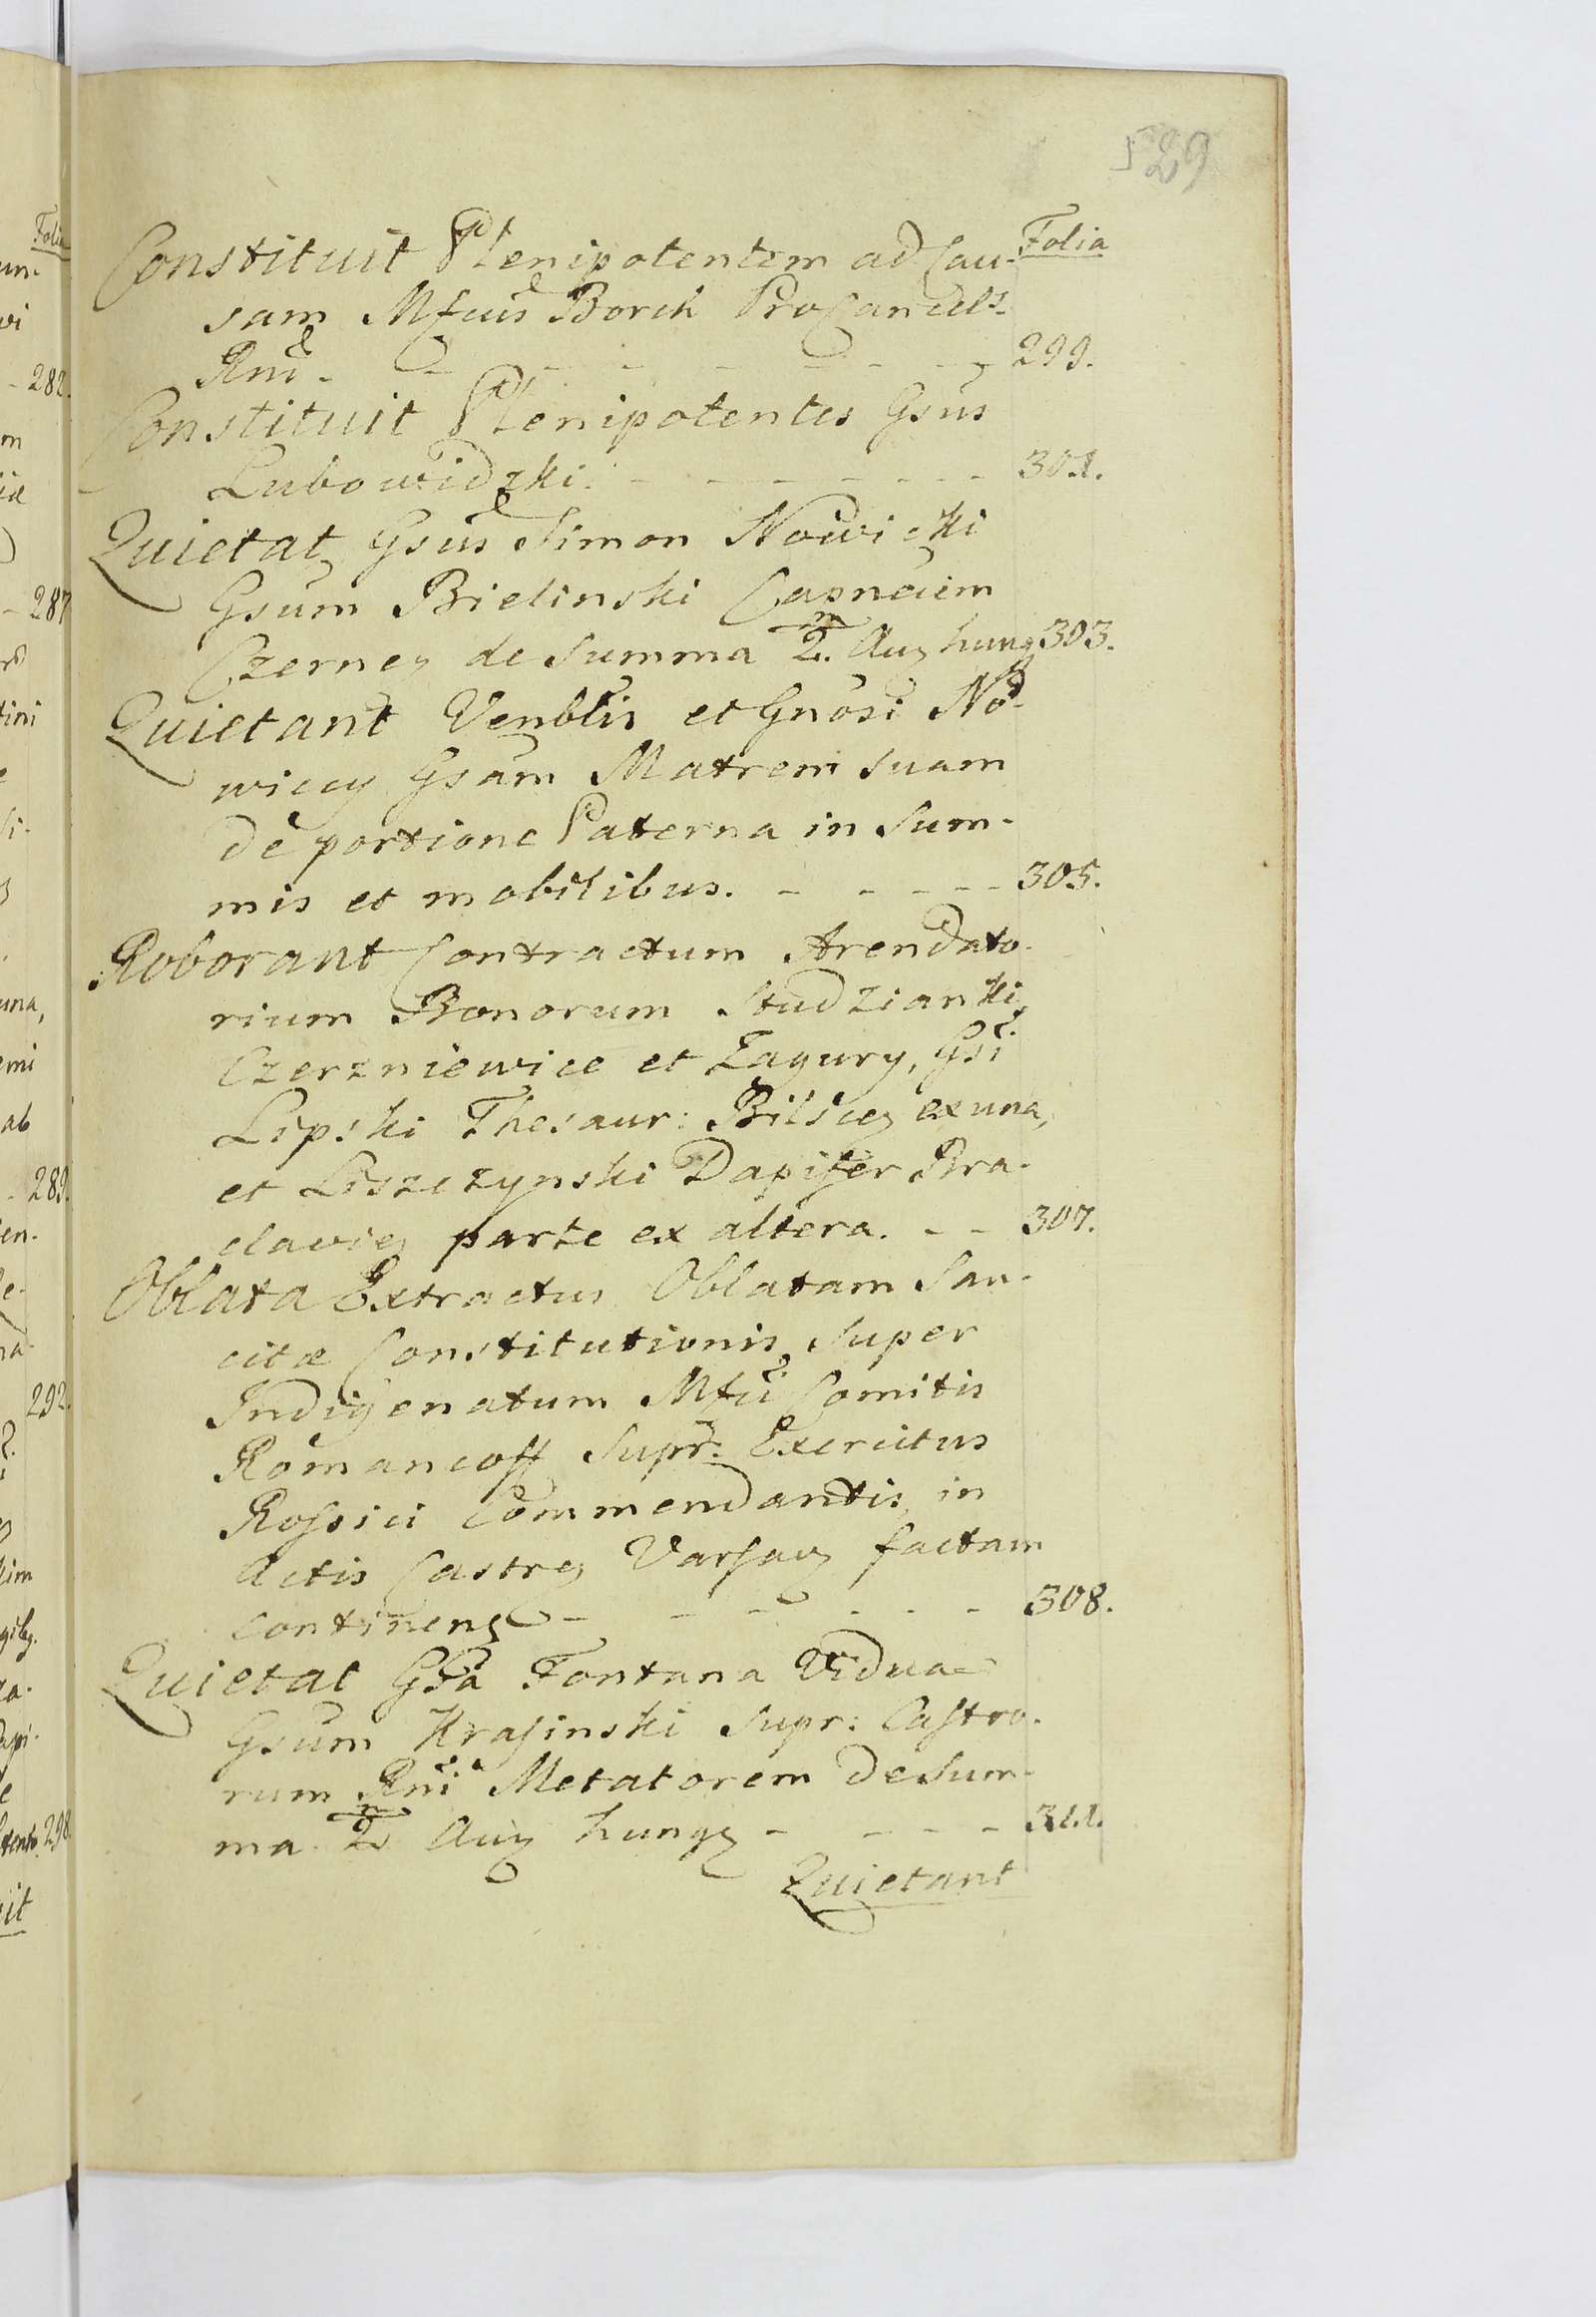 529
Folia
Constituit Plenipotentem ad Cau-
sam Mfcus Borch ProCancells
Rni. - - - - - - - 299.
Constituit Plenipotentes Gsus
Lubowidzki. - - - - - - 301.
Quietat Gsus Simon Nowicki
Gsum Bielinski Capneum
Czerney de Summa 2. Auy hung 303.
Quietant Venblis et Gnosi No-
wiccy Gsam Matrem suam
de portione Paterna in Sum-
mis et mobilibus. - - - - - 305.
Roborant Contractum Arendato-
rium Bonorum Studzianki,
Czerzniewice et Zagury, Gsi
Lipski Thesaur: Bilscey ex una,
et Liszczynski Dapifer Bra-
claviey parte ex altera. - - 307.
Oblata Extractus Oblatam San-
citæ Constitutionis super
Indigenatum Mfci Comitis
Romancoff Supr: Exercitus
Rossici Commendantis, in
Actis Castrey Varsavy factam
continens - - - - - - 308.
Quietat Gsa Fontana Vidua
Gsum Krasinski Supr: Castro-
rum Rni Metatorem de Sum-
ma 2 Auy hungy - - - - 311.
Quietant